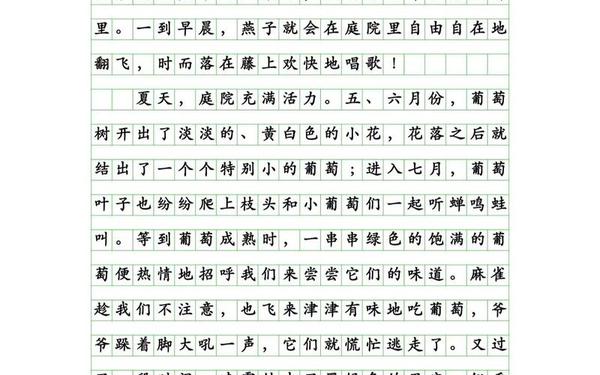 里。一到早晨，燕子就会在庭院里自由自在地
翻飞，时而落在藤上欢快地唱歌！
夏天，庭院充满活力。五、六月份，葡萄
树开出了淡淡的、黄白色的小花，花落之后就
结出了一个个特别小的葡萄；进入七月，葡萄
叶子也纷纷爬上枝头和小葡萄们一起听蝉鸣蛙
叫。等到葡萄成熟时，一串串绿色的饱满的葡
萄便热情地招呼我们来尝尝它们的味道。麻雀
趁我们不注意，也飞来津津有味地吃葡萄，爷
爷跺着脚大吼一声，它们就慌忙逃走了。又过